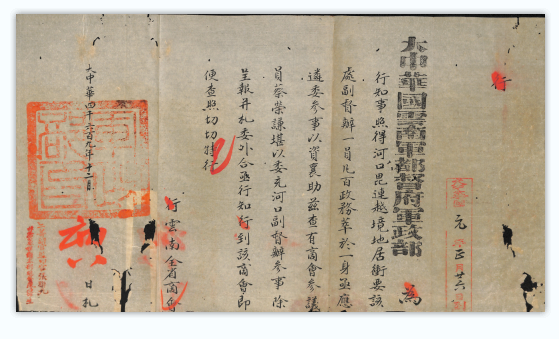 大中華國雲南軍都督府軍政部
為
行知事照得河口毘連越境地居衝要該
處副督辦一員凡百政務萃於一身亟應
遴委參事以資襄助茲查有商會參議
員蔡榮謙堪以委充河口副督辦參事除
呈報并札委外合亟行知行到該商會即
便查照切切特行
行雲南全省商會
大中華四千六百九年十二月
日札
行
元
正月廿六